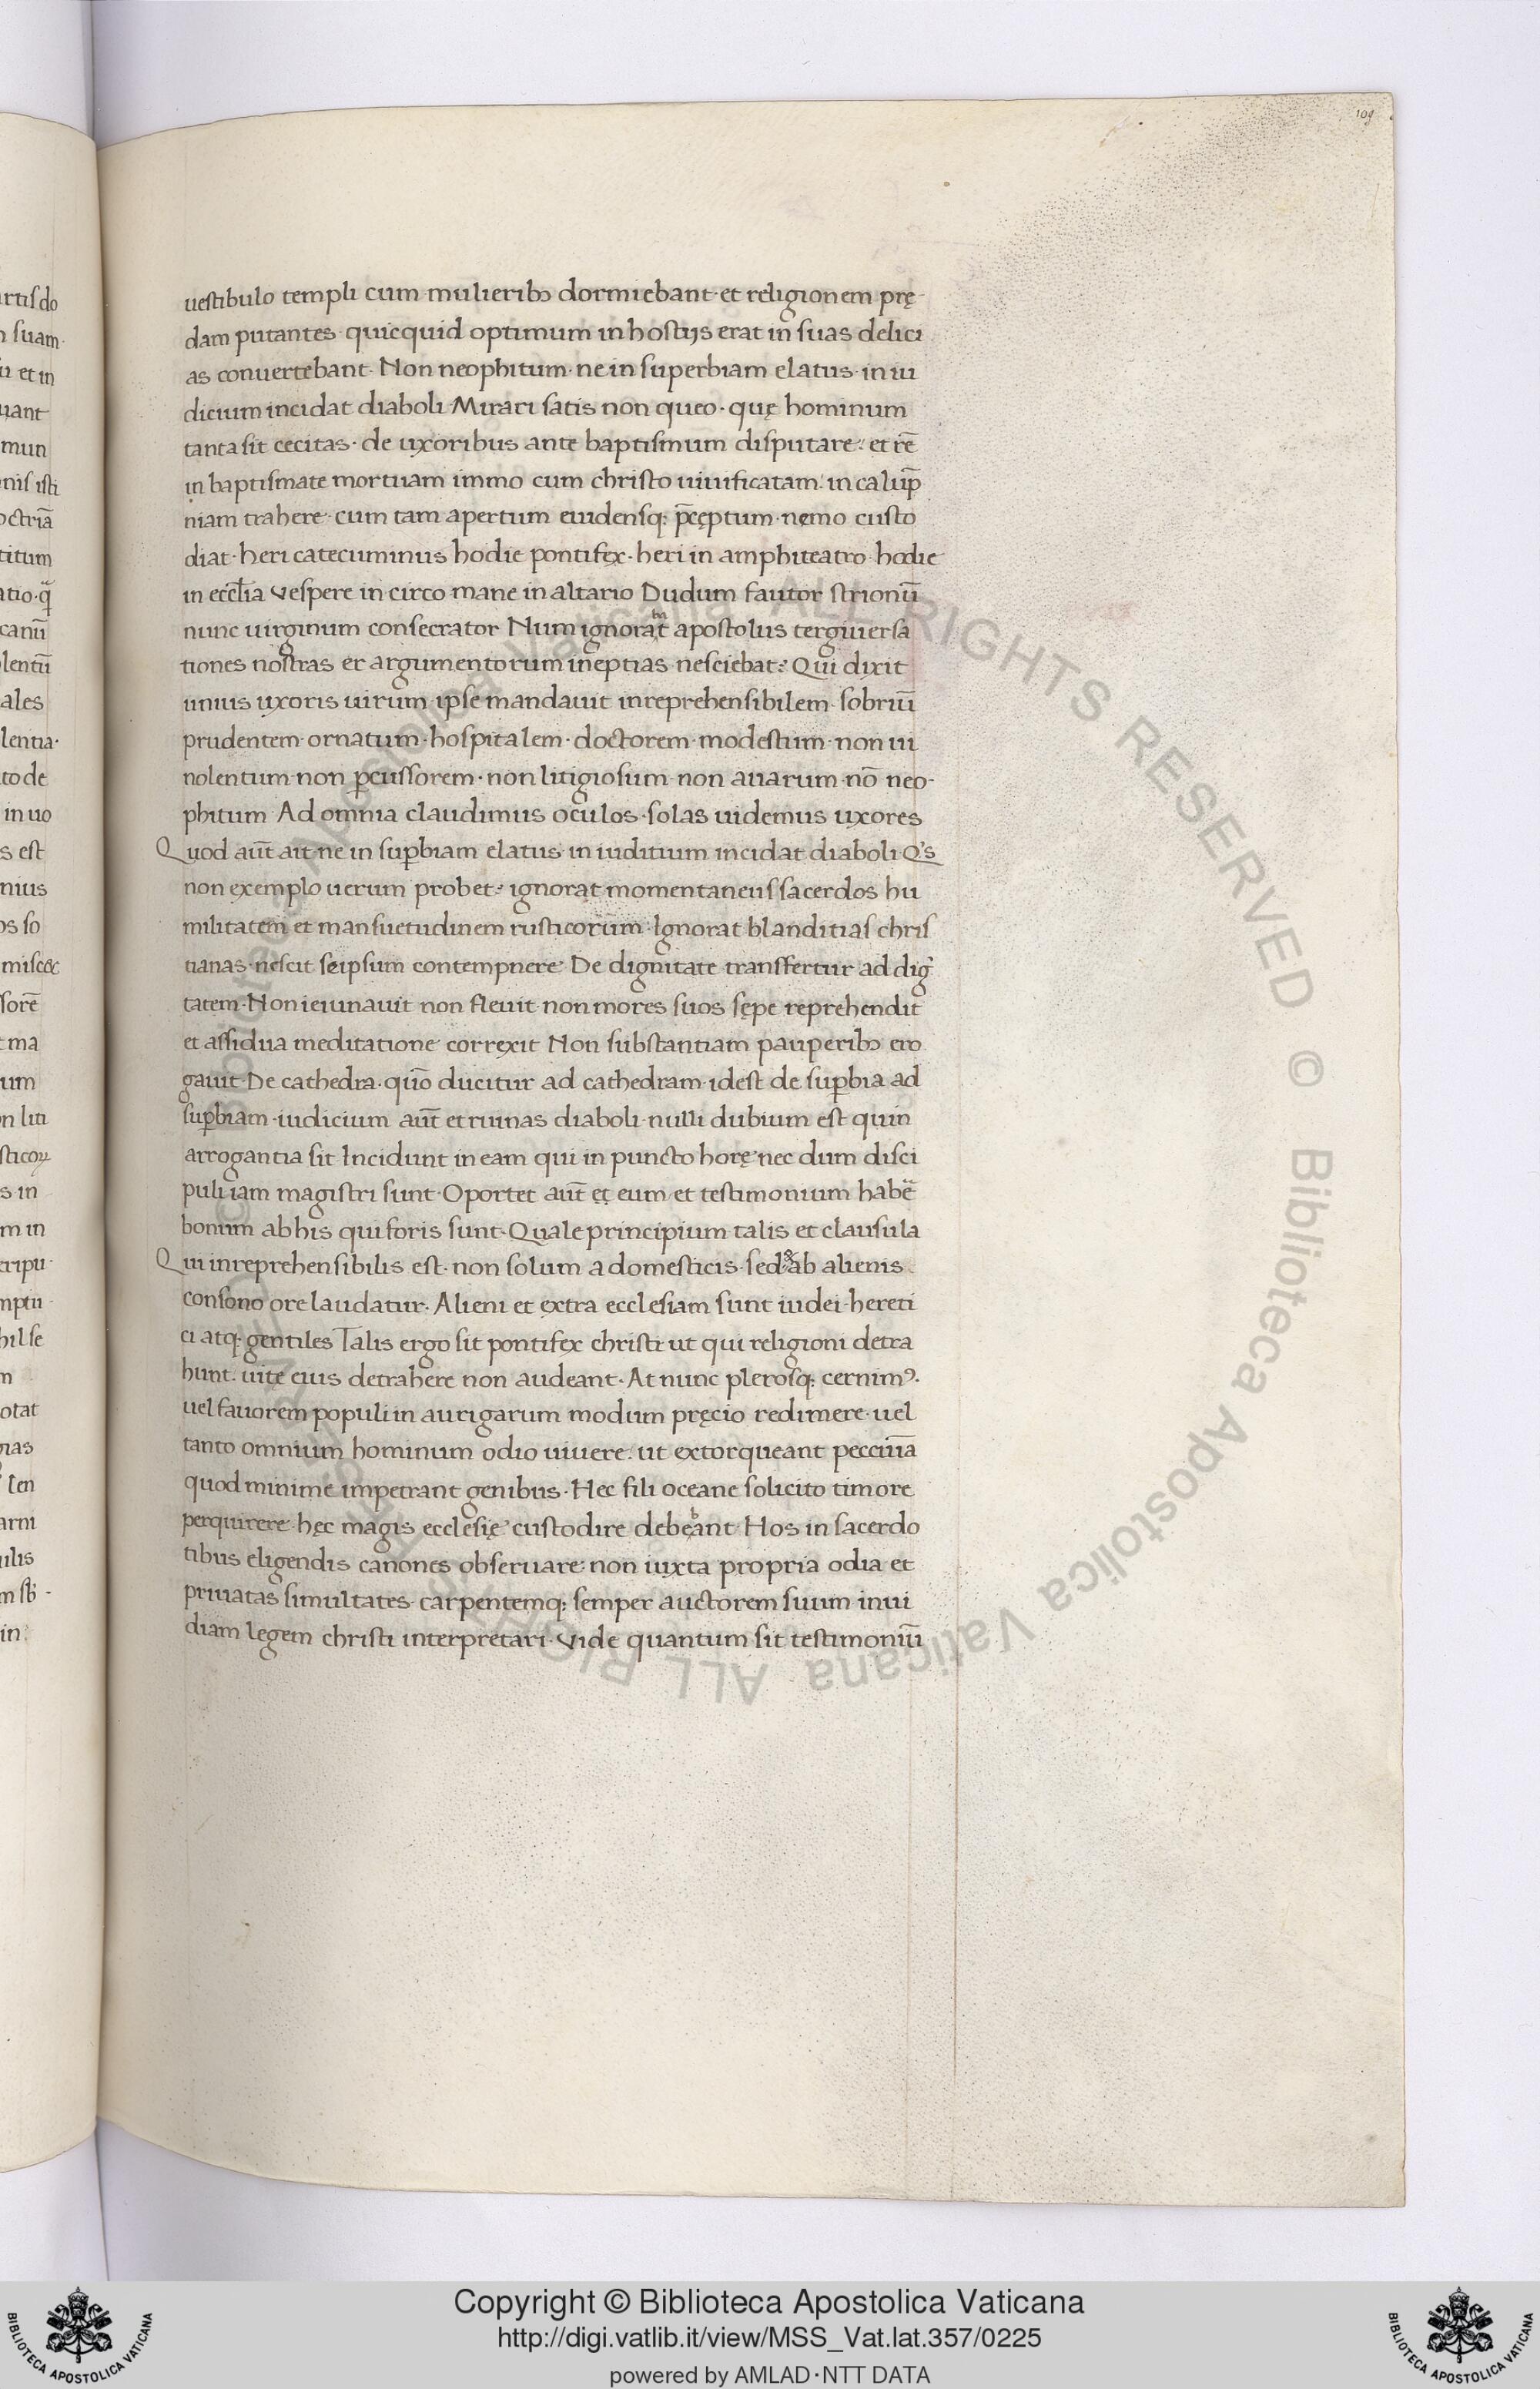 109
uestibulo templi cum mulierib; dormiebant· et religionem prę-
dam putantes· quicquid optimum in hostijs erat in suas delici
as conuertebant· Non neophitum· ne in superbiam elatus· in iu
dicium incidat diaboli· Mirari satis non queo· quę hominum
tanta sit cecitas· de uxoribus ante baptismum disputare: et rē
in baptismate mortuam immo cum christo uiuificatam: in calup̄
niam trahere· cum tam apertum euidensq; p̄cęptum· nemo custo
diat· heri catecuminus hodie pontifex· heri in amphiteatro· hodie
in eccl̄ia vespere in circo mane in altario Dudum fautor strionū
nunc uirginum consecrator Num ignorabat apostolus tergiuersa
tiones nostras et argumentorum ineptias nesciebat? Qui dixit
unius uxoris uirum· ipse mandauit inreprehensibilem· sobriū
prudentem· ornatum· hospitalem· doctorem· modestum· non ui
nolentum· non p̱cussorem· non litigiosum· non auarum· nō neo-
phitum· Ad omnia claudimus oculos· solas uidemus uxores
Quod aūt ait· ne in sup̱biam elatus· in iuditium incidat diaboli· Q's
non exemplo uerum probet? ignorat momentaneus sacerdos hu
militatem et mansuetudinem rusticorum· Ignorat blanditias chris
tianas· nescit seipsum contempnere· De dignitate transfertur ad dig̓
tatem· Non ieiunauit non fleuit· non mores suos sępe reprehendit
et assidua meditatione correxit Non substantiam pauperib; ero
gauit· De cathedra· quō ducitur ad cathedram· idest de sup̱bia ad
sup̱biam· iudicium aūt et ruinas diaboli· nulli dubium est quin
arrogantia sit· Incidunt in eam qui in puncto horę nec dum disci
puli iam magistri sunt· Oportet aūt et eum et testimonium habē
bonum ab his qui foris sunt· Quale principium talis et clausula
Qui inreprehensibilis est· non solum a domesticis· sed & ab alienis·
consono ore laudatur· Alieni et extra ecclesiam sunt iudei· hereti
ci atq; gentiles Talis ergo sit pontifex christi· ut qui religioni detra
hunt· uite eius detrahere non audeant· At nunc plerosq; cernimꝰ·
uel fauorem populi in aurigarum modum pręcio redimere· uel
tanto omnium hominum odio uiuere: ut extorqueant peccuniā
quod minime impetrant genibus· Hec fili oceane solicito timore
perquirere· hęc magis ecclesię custodire debeant Hos in sacerdo
tibus eligendis canones obseruare· non iuxta propria odia et
priuatas simultates· carpentemq; semper auctorem suum inui
diam legem christi interpretari· vide quantum sit testimoniū
Copyright © Biblioteca Apostolica Vaticana
http://digi.vatlib.it/view/MSS_Vat.lat.357/0225
powered by AMLAD·NTT DATA